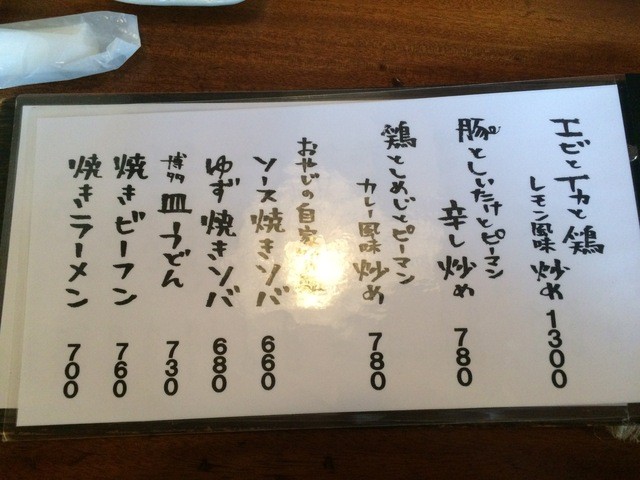 エビとイカと鶏
レモン風味炒め 1300
豚としいたけとピーマン
辛し炒め 780
鶏としめじとピーマン
カレー風味炒め 780
おやじの自家
ソース焼きソバ 660
ゆず焼きソバ 680
博多皿うどん 730
焼きビーフン 760
焼きラーメン 700